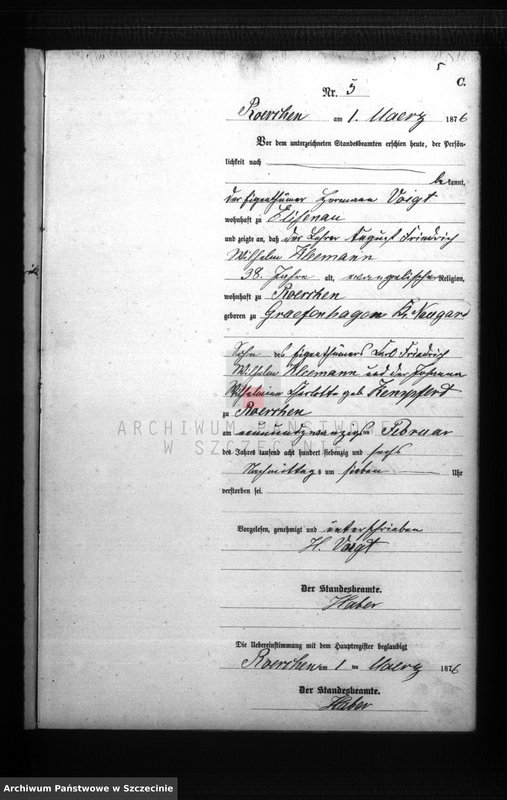 5
C.
Nr. 5
Roerchen am 1. Maerz 1876
Vor dem unterzeichneten Standesbeamten erschien heute, der Persön-
lichkeit nach
be kannt,
der Eigenthümer Hermann Voigt
wohnhaft zu Elisenau
und zeigte an, daß der Lehrer August Friedrich
Wilhelm Kleemann
38. Jahre alt, evangelischer Religion,
wohnhaft zu Roerchen
geboren zu Graefenhagen Kr. Naugard
Sohn des Eigenthümers Carl Friedrich
Wilhelm Kleemann und der Johanna
Wilhelmine Charlotte geb. Kempfert
zu Roerchen
am neunundzwanzigsten Februar
des Jahres tausend acht hundert siebenzig und sechs
Nachmittags um sieben Uhr
verstorben sei.
Vorgelesen, genehmigt und unterschrieben
H. Voigt
Der Standesbeamte.
Haber
Die Uebereinstimmung mit dem Hauptregister beglaubigt
Roerchen am 1 ten Maerz 1876
Der Standesbeamte.
Haber
ARCHIWUM PAŃSTWOWE
W SZCZECINIE
Archiwum Państwowe w Szczecinie